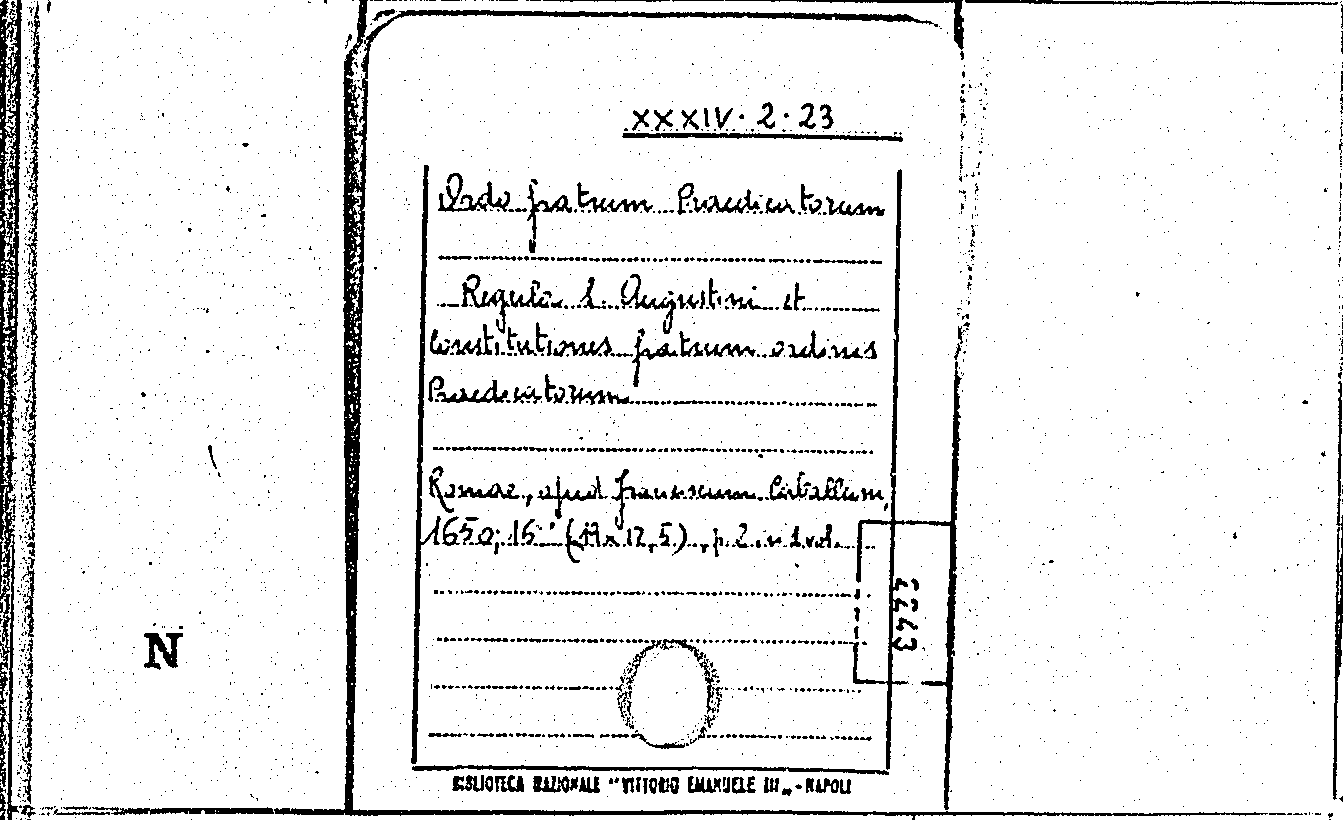 XXXIV. 2. 23
Ordo fratrum Praedicatorum
Regula S. Augustini et
Constitutiones fratrum ordinis
Praedicatorum
Romae, apud Franciscum Caballum,
1650; 16° ( x 12,5), p. 2 in 1 vol.
2243
N
BIBLIOTECA NAZIONALE "VITTORIO EMANUELE III„ - NAPOLI